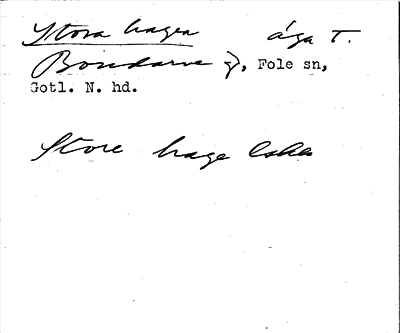 Stora hagen äga T.
Bondarve, Fole sn,
Gotl. N. hd.
Store hage